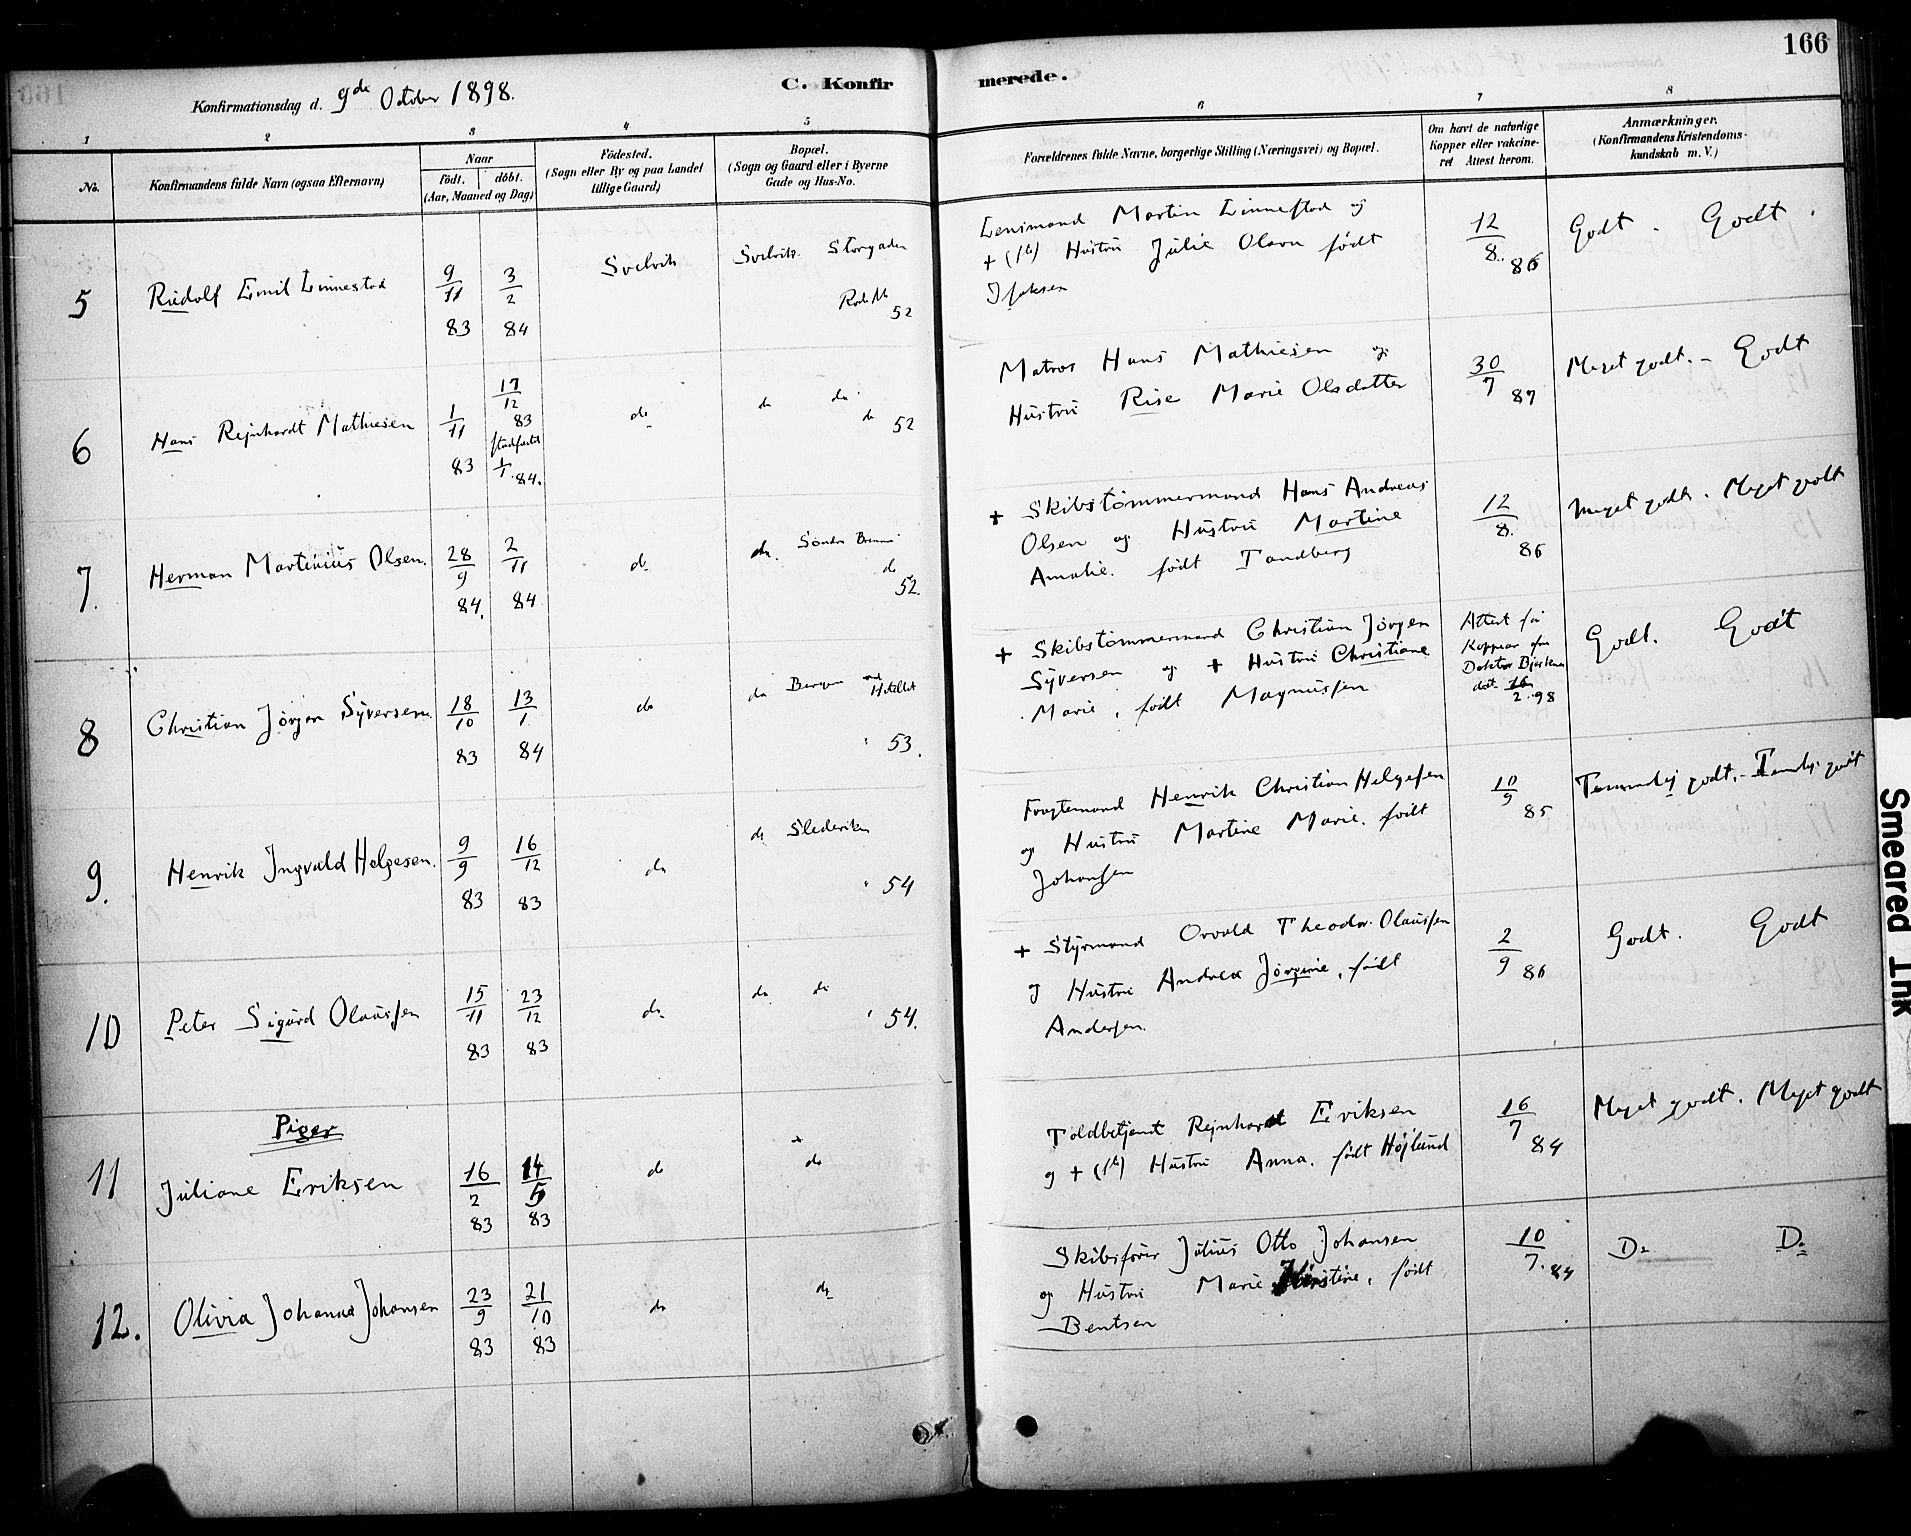 166
C. Konfirmerede.
Konfirmationsdag d. 9de October 1898.
1 2 3 4 5 6 7 8
No.
Konfirmandens fulde Navn (ogsaa Efternavn)
Naar
födt. döbt.
(Aar, Maaned og Dag)
Födested.
(Sogn eller By og paa Landet
tillige Gaard)
Bopæl.
(Sogn og Gaard eller i Byerne
Gade og Hus-No.
Forældrenes fulde Navne, borgerlige Stilling (Næringsvei) og Bopæl.
Om havt de naturlige
Kopper eller vakcine-
ret Attest herom.
Anmærkninger.
(Konfirmandens Kristendoms-
kundskab m. V.)
5 Rudolf Emil Linnestad 9/11 83 3/2 84 Svelvik Svelvik Storgaden
52
Lensmand Martin Linnestad og
+ (1ste) Hustru Julie Olava født
Isaksen
12/8 86 Godt. Godt.
6 Hans Rejnhardt Mathiesen 1/11 83 17/12 83
stadfæstet 1/1 84. do do do
do 52
Matros Hans Mathiesen og
Hustru Rise Marie Olsdatter
30/7 87 Meget godt. - Godt
7. Herman Martinius Olsen. 28/9 84. 2/11 84 do do. Søndre
do 52.
+ Skibstømmermand Hans Andreas
Olsen og Hustru Martine
Amalie. født Tandberg
12/8 86 Meget godt. Meget godt
8 Christian Jørgen Syversen. 18/10 83 13/1 84 do do Bergen ved Hotellet
" 53.
+ Skibstømmermand Christian Jørgen
Syversen og + Hustru Christiane
Marie, født Magnussen
Attest for
Koppear fra
Doktor
dat. 16/2 98
Godt. Godt
9. Henrik Ingvald Helgesen. 9/9 83 16/12 83 do do Slederiken
" 54
Fragtemand Henrik Christian Helgesen
og Hustru Martine Marie. født
Johansen
10/9 85 Temmelig godt. - Temlig. godt
10 Peter Sigurd Olaussen 15/11 83 23/12 83 do do do
" 54.
+ Styrmand Orvald Theodor Olaussen
og Hustru Andrea Jørgine, født
Andersen.
2/9 86 Godt. Godt
Piger
11 Juliane Eriksen 16/2 83 14/5 83 do +
do
Toldbetjent Rejnhardt Eriksen
og + (1ste) Hustru Anna. født Højlund
16/7 84 Meget godt. Meget godt
12. Olivia Johanna Johansen 23/9 83 21/10 83 do do
Skibsfører Julius Otto Johansen
og Hustru Marie Kirstine, født
Bentsen
10/7. 84 Do Do
Smeared Ink